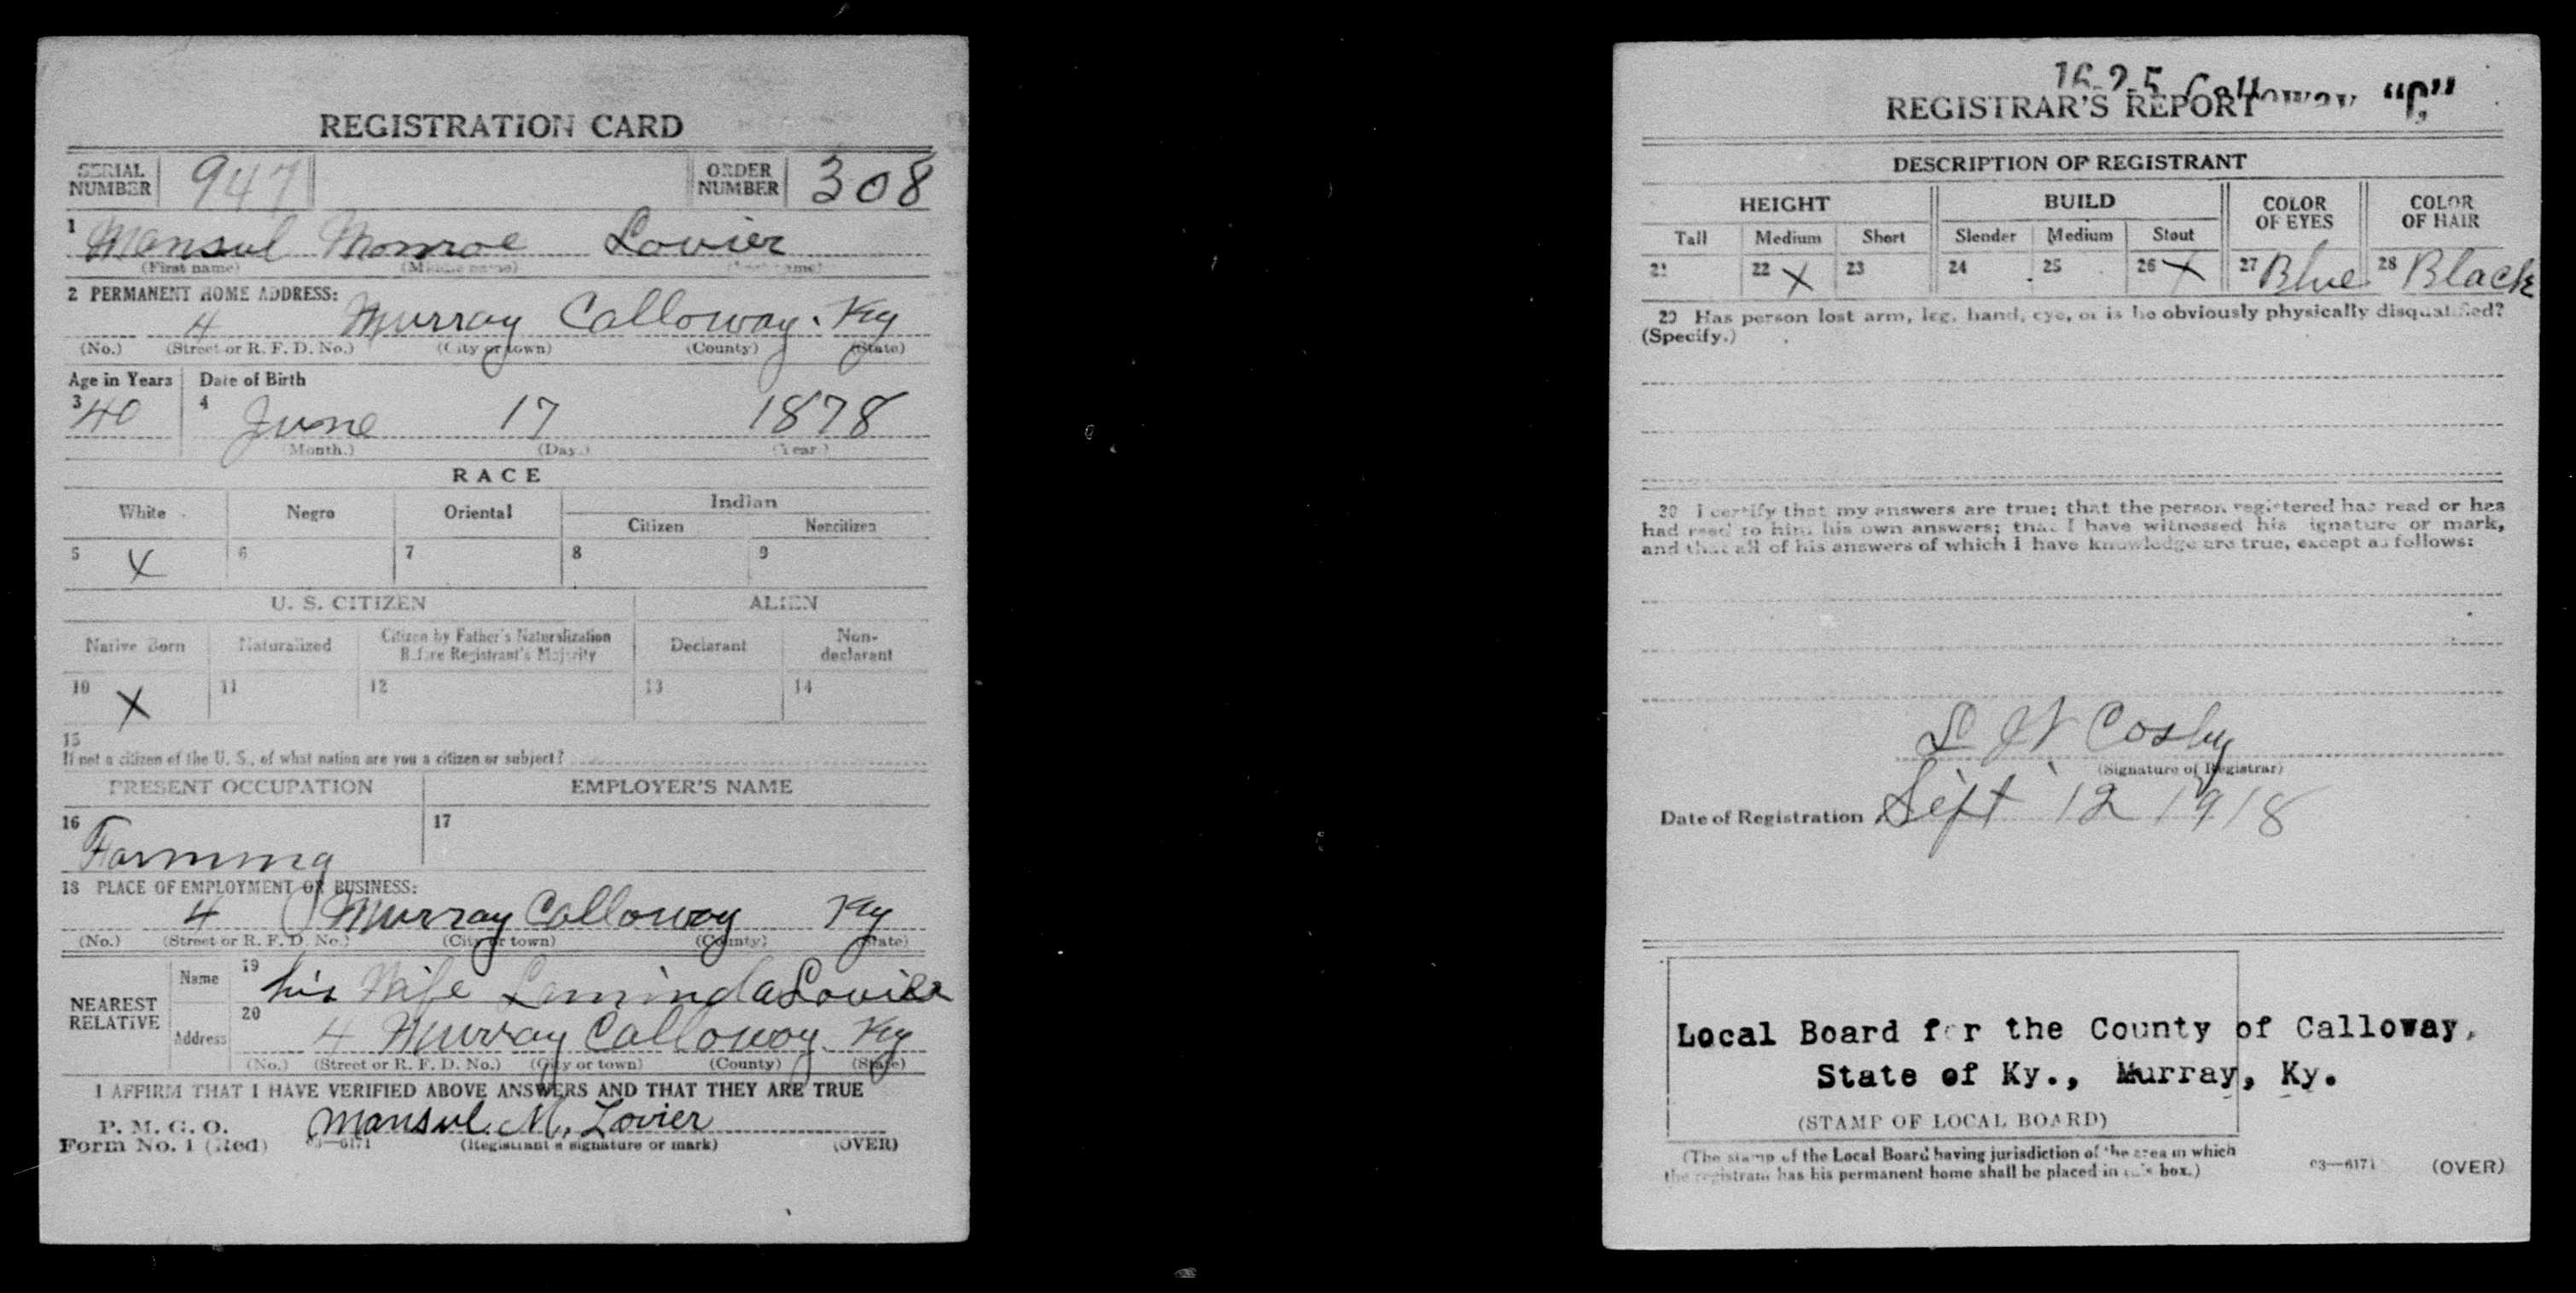 REGISTRATION CARD
SERIAL NUMBER 947 ORDER NUMBER 308
1 Mansul Monroe Lovier
(First name) (Middle name) (Last name)
2 PERMANENT HOME ADDRESS:
4 Murray Calloway. Ky
(No.) (Street or R. F. D. No.) (City or town) (County) (State)
Age in Years Date of Birth
3 40 4 June 17 1878
(Month.) (Day.) (Year.)
RACE
White Negro Oriental Indian
Citizen Noncitizen
5 X 6 7 8 9
U. S. CITIZEN ALIEN
Native Born Naturalized Citizen by Father's Naturalization Before Registrant's Majority Declarant Non-declarant
10 X 11 12 13 14
15
If not a citizen of the U. S., of what nation are you a citizen or subject?
PRESENT OCCUPATION EMPLOYER'S NAME
16 Farming 17
18 PLACE OF EMPLOYMENT OR BUSINESS:
4 Murray Calloway Ky
(No.) (Street or R. F. D. No.) (City or town) (County) (State)
NEAREST RELATIVE Name 19 his Wife Laminda Lovier
Address 20 4 Murray Calloway. Ky
(No.) (Street or R. F. D. No.) (City or town) (County) (State)
I AFFIRM THAT I HAVE VERIFIED ABOVE ANSWERS AND THAT THEY ARE TRUE
P. M. G. O.
Form No. 1 (Red) 03—6171 Mansul. M. Lovier
(Registrant's signature or mark) (OVER)
16-2-5 Calloway "C"
REGISTRAR'S REPORT
DESCRIPTION OF REGISTRANT
HEIGHT BUILD COLOR OF EYES COLOR OF HAIR
Tall Medium Short Slender Medium Stout
21 22 X 23 24 25 26 X 27 Blue 28 Black
29 Has person lost arm, leg, hand, eye, or is he obviously physically disqualified?
(Specify.)
30 I certify that my answers are true; that the person registered has read or has
had read to him his own answers; that I have witnessed his signature or mark,
and that all of his answers of which I have knowledge are true, except as follows:
W Cosby
(Signature of Registrar)
Date of Registration Sept 12 1918
Local Board for the County of Calloway,
State of Ky., Murray, Ky.
(STAMP OF LOCAL BOARD)
(The stamp of the Local Board having jurisdiction of the area in which
the registrant has his permanent home shall be placed in this box.)
03—6171 (OVER)